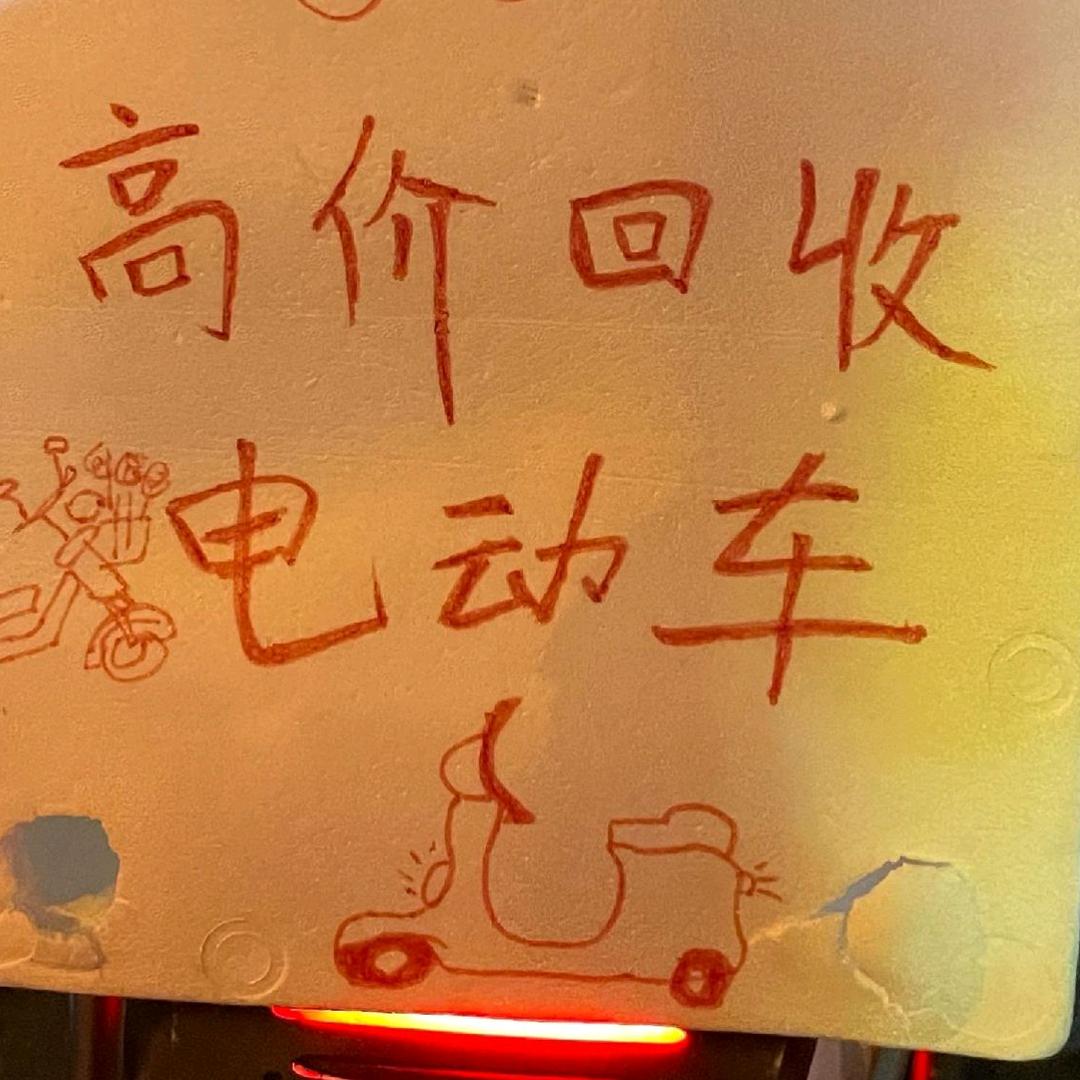 高价回收
电动车